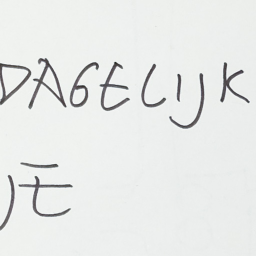 DAGELIJK
JE